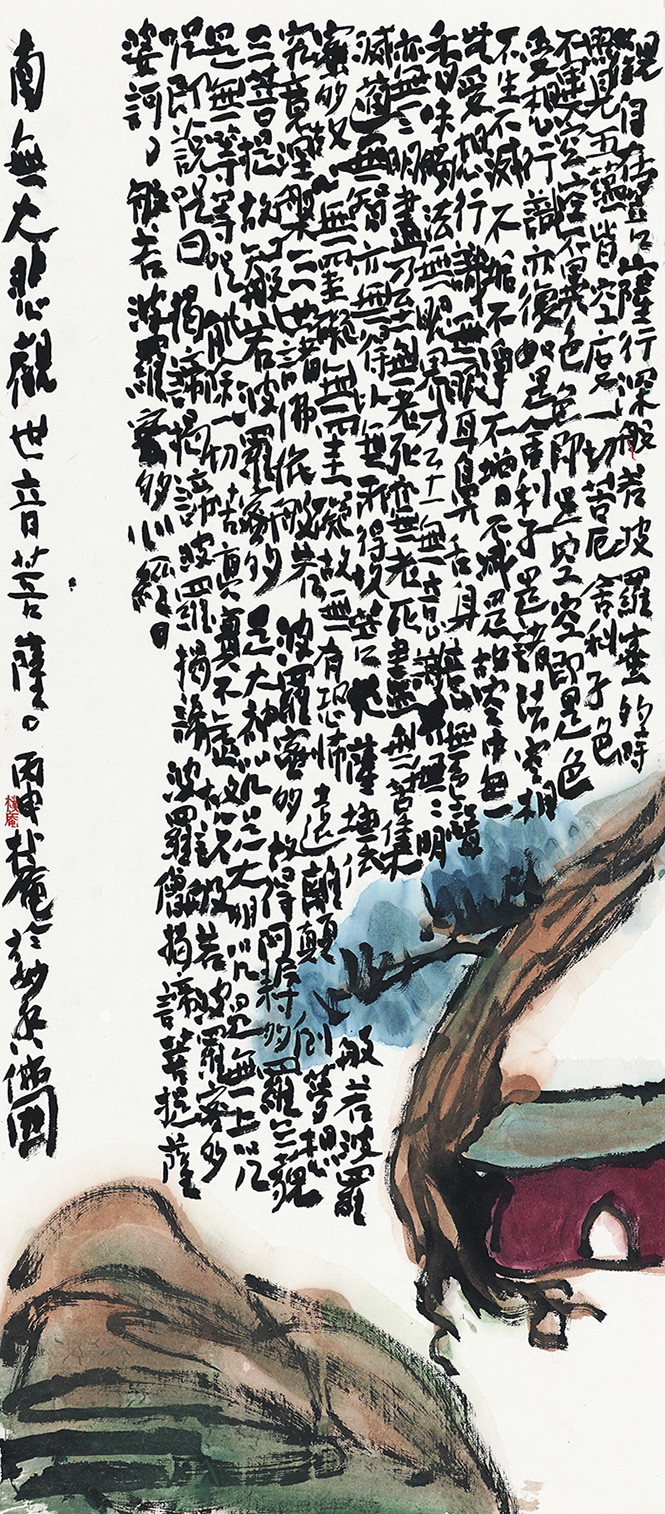 觀自在菩薩行深般若波羅蜜多時
照見五蘊皆空度一切苦厄舍利子色
不異空空不異色色即是空空即是色
受想行識亦復如是舍利子是諸法空相
不生不滅不垢不淨不增不減是故空中無
色受想行識無眼耳鼻舌身意無色聲
香味觸法無眼界乃至無意識界無無明
亦無無明盡乃至無老死亦無老死盡無苦集
滅道無智亦無得以無所得故菩提薩埵依般若波羅
蜜多故心無罣礙無罣礙故無有恐怖遠離顛倒夢想
究竟涅槃三世諸佛依般若波羅蜜多故得阿耨多羅三藐
三菩提故知般若波羅蜜多是大神咒是大明咒是無上咒
是無等等咒能除一切苦真實不虛故說般若波羅蜜多
咒即說咒曰揭諦揭諦波羅揭諦波羅僧揭諦菩提薩
婆訶般若波羅蜜多心經
南無大悲觀世音菩薩。丙申樸庵於妙香佛國
樸庵